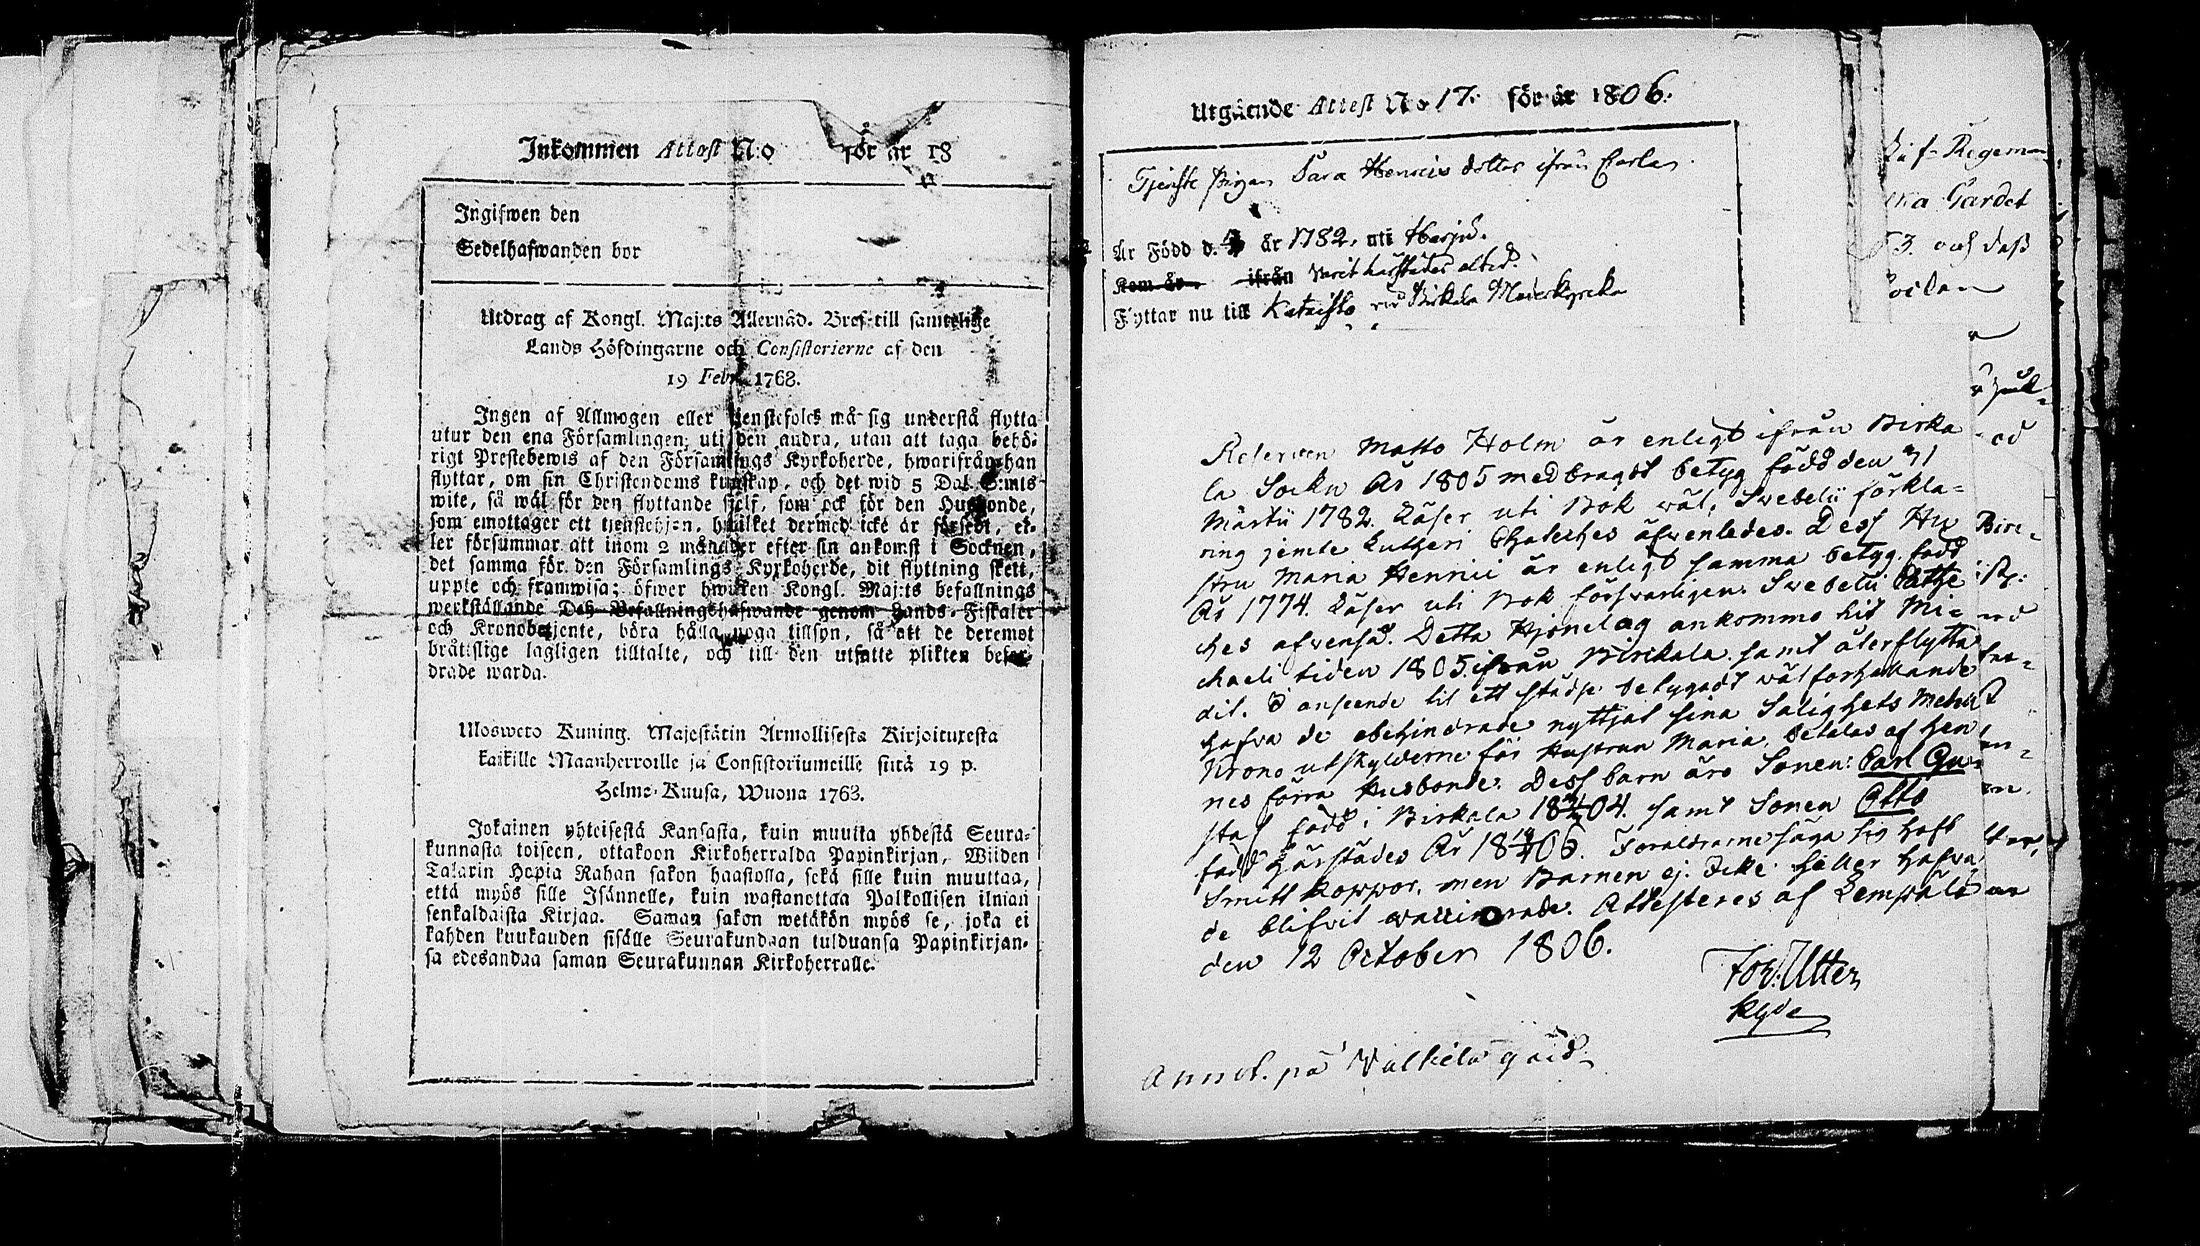 Inkommen Attest N:o för år 18
Ingifwen den
Sedelhafwanden bor
Utdrag af Kongl. Maj:ts Allernåd. Bref till samtelige
Lands Höfdingarne och Consistorierne af den
19 Febr. 1763.
Ingen af Allmogen eller tjenstefolck må sig understå flytta
utur den ena Församlingen, uti den andra, utan att taga behö-
rigt Prestebewis af den Församlings Kyrkoherde, hwarifrån han
flyttar, om sin Christendoms kunskap, och det wid 5 Dal. S:mts
wite, så wäl för den flyttande sjelf, som ock för den Husbonde,
som emottager ett tjenstehjon, hwilket dermed icke är försedt, el-
ler försummar att inom 2 månader efter sin ankomst i Socknen,
det samma för den Församlings Kyrkoherde, dit flyttning skett,
uppte och framwisa; öfwer hwilken Kongl. Maj:ts befallnings
werkställande Deß Befallningshafwande genom Lands-Fiskaler
och Kronobetjente, böra hålla noga tillsyn, så att de deremot
brätslige lagligen tilltalte, och till den utsatte plikten befor-
drade warda.
Uloswero Kuning. Majestätin Armollisesta Kirjoituxesta
kaikille Maanherroille ja Consistoriumeille siitä 19 p.
Helme-Kuusa, Wuona 1763.
Jokainen yhteisestä Kansasta, kuin muutta yhdestä Seura-
kunnasta toiseen, ottakoon Kirkoherralda Papinkirjan, Wiiden
Talarin Hopia Rahan sakon haastolla, sekä sille kuin muuttaa,
että myös sille Isännelle, kuin wastanottaa Palkollisen ilman
senkaldaista Kirjaa. Saman sakon wetäkön myös se, joka ei
kahden kuukauden sisälle Seurakundaan tulduansa Papinkirjan-
sa edesandaa saman Seurakunnan Kirkoherralle.
Utgående Attest No 17. för år 1806.
Tjenste Pigan Sara Henrics dotter ifrån
Är Född d. år 1782. uti Harju.
Kom år ifrån Varit härstädes altid.
Flyttar nu till Kataisto vid Birkala Moderkyrcka
Matts Holm är enligt ifrån Birka
la Sockn År 1805 medbragdt betyg född den 31
Martii 1782. Läser uti Bok wäl, Swebelii förkla=
ring jemte Lutheri Chateches äfwenledes. Dess Hu
stru Maria Henrici är enligt samma betyg född
År 1774. Läser uti Bok försvarligen. Swebelii Cathe
ches äfvenså. Detta Hjonelag ankommo hit Mi=
chaeli tiden 1805. ifrån Birckala samt återflytta
dit. I anseende til ett städse betygadt wälförhållande
hafva de obehindrade nyttjat sina Salighets Medel
Krono utskylderne för Hustrun Maria, betalas af hen
nes förra Husbonde. Dess barn äro Sonen: Carl Gu=
staf född i Birkala 18 04. samt Sonen Otto
född härstädes År 18 06. Föräldrarne säga sig haft
Smitt koppor, men Barnen ej. Icke heller hafva
de blifvit waccinerade. Attesteras af Lempälä
den 12 October 1806.
Utter
Kyde
Annot. på Walkila gård.
Regem
Gardet
3. och dess
Bire=